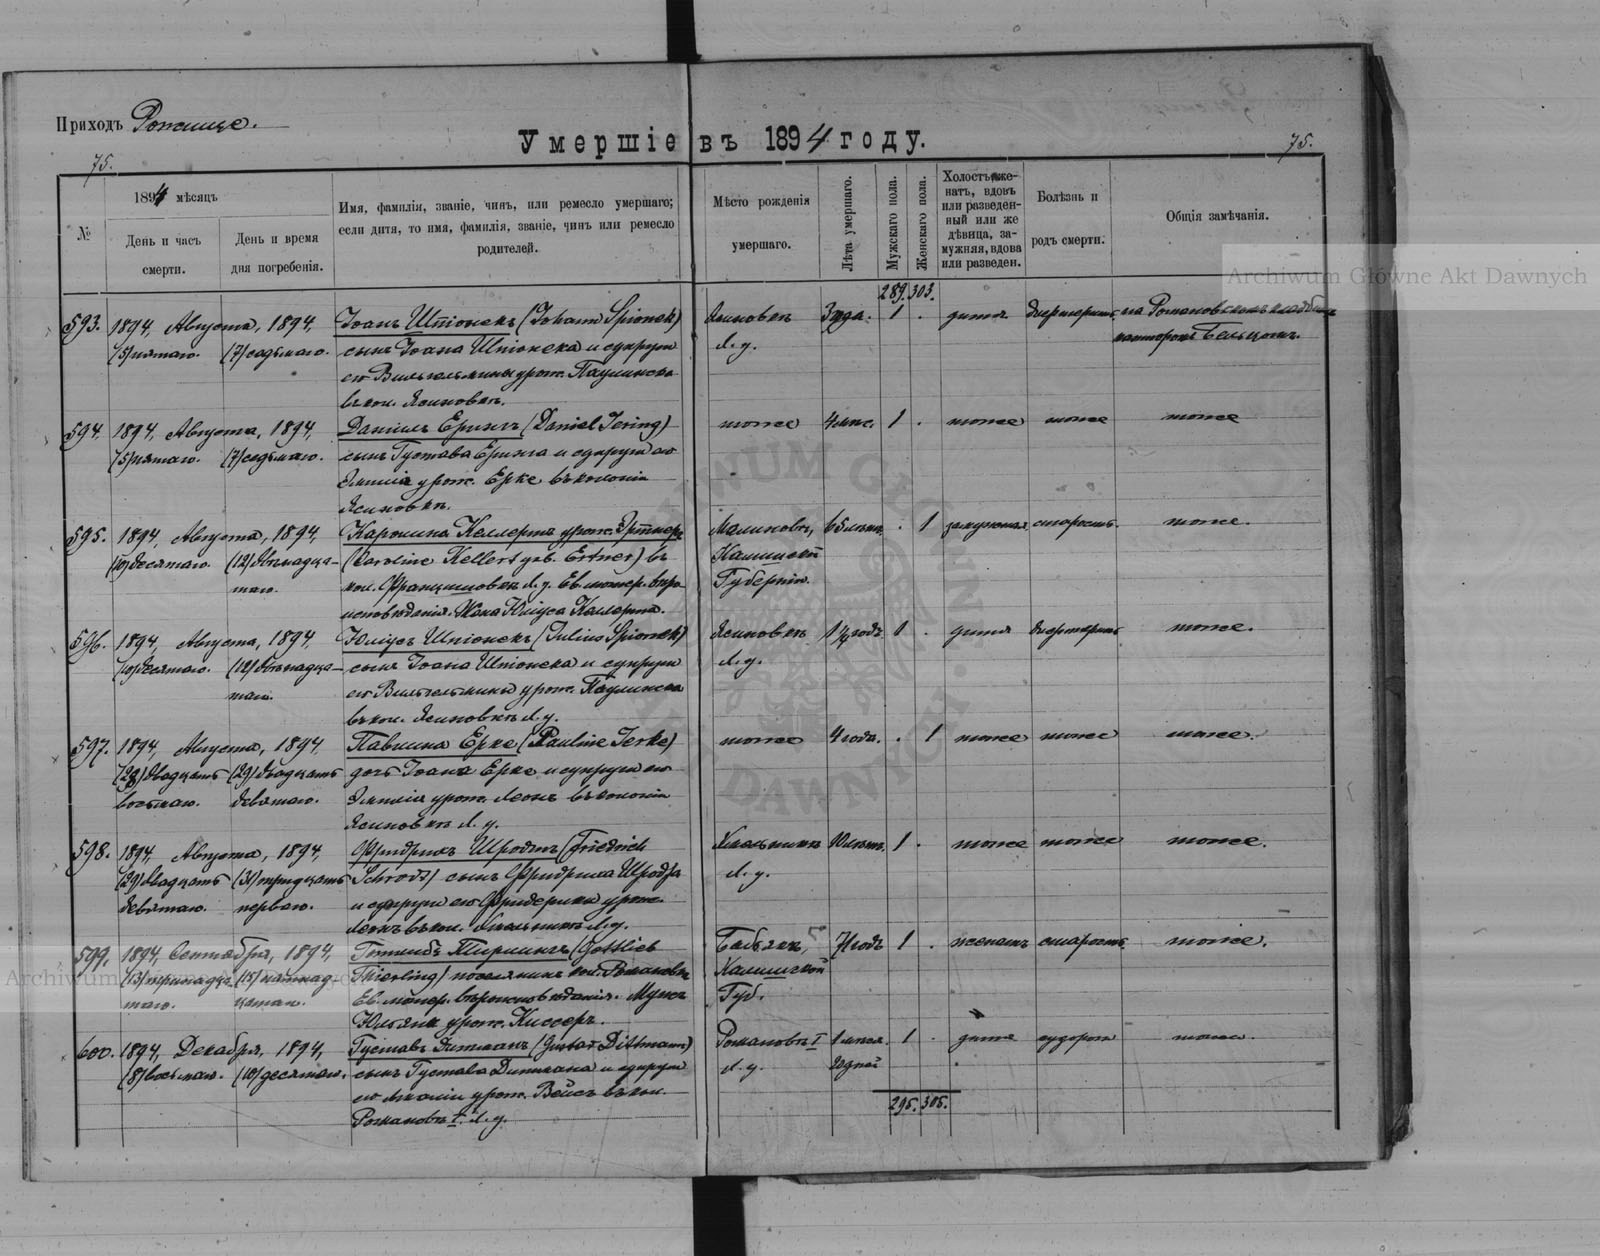 Приходъ Рожище.
Умершіе въ 1894 году.
75.
75.
№
1894 мѣсяцъ
День и часъ смерти.
День и время дня погребенія.
Имя, фамилія, званіе, чинъ, или ремесло умершаго;
если дитя, то имя, фамилія, званіе, чинъ или ремесло
родителей.
Мѣсто рожденія
умершаго.
Лѣта умершаго.
Мужскаго пола.
Женскаго пола.
Холостъ, же-
натъ, вдовъ
или разведен-
ный или же
дѣвица, за-
мужняя, вдова
или разведен.
Болѣзнь и
родъ смерти.
Общія замѣчанія.
289. 303.
593. 1894, Августа, 1894, Іоанъ Шпіонекъ (Johann Spionek) Ясиновка 3 года. 1 . дитя дифтеритъ на Романовскомъ кладбищѣ
(5) пятаго. (7) седьмаго. сынъ Іоана Шпіонека и супруги Л. у. пасторомъ
его Вильгельмины урож. Паулинска
въ кол. Ясиновкѣ.
594. 1894, Августа, 1894, Даніилъ Ерингъ (Daniel Jering) тоже 4 мѣс. 1 . тоже тоже тоже
(5) пятаго. (7) седьмаго. сынъ Густава Еринга и супруги его
Эмиліи урож. Ерке въ колоніи
Ясиновкѣ.
595. 1894, Августа, 1894, Каролина Келлертъ урож. Эртнеръ Малиновка, 65 лѣтъ . 1 замужняя старость тоже.
(10) десятаго. (12) двѣнадца- (Caroline Kellert geb. Ertner) въ Калишской
таго. кол. Францишковкѣ Л. у. Ев. лютер. вѣро Губерніи.
исповѣданія. Жена Юліуса Келлерта.
596. 1894, Августа, 1894, Юліусъ Шпіонекъ (Julius Spionek) Ясиновка 1 1/4 годъ 1 . дитя дифтеритъ тоже.
(10) десятаго. (12) двѣнадца- сынъ Іоана Шпіонека и супруги Л. у.
таго. его Вильгельмины урож. Паулинска
въ кол. Ясиновкѣ Л. у.
597. 1894, Августа, 1894, Павлина Ерке (Pauline Jerke) тоже 4 года. . 1 тоже тоже тоже.
(28) двадцать (29) двадцать дочь Іоана Ерке и супруги его
восьмаго. девятаго. Эмиліи урож. Леонъ въ колоніи
Ясиновкѣ Л. у.
598. 1894, Августа, 1894, Фридрихъ Шродтъ (Friedrich Хмельникъ 10 лѣтъ. 1 . тоже тоже тоже.
(29) двадцать (31) тридцать Schrodt) сынъ Фридриха Шродта Л. у.
девятаго. перваго. и супруги его Фридерики урож.
Леонъ въ кол. Хмельникъ Л. у.
599. 1894, Сентября, 1894, Готлибъ Тирлингъ (Gottlieb Бабьякъ, 71 годъ 1 . женатъ старость тоже.
(13) тринадца- (15) пятнад- Thierling) поселянинъ кол. Романовка Калишской
таго. цатаго. Ев. лютер. вѣроисповѣданія. Мужъ Губ.
Юльяны урож. Киссеръ.
600. 1894, Декабря, 1894, Густавъ Дитманъ (Gustav Dittmann) Романовка I 1 мѣся. 1 . дитя судороги тоже.
(8) восьмаго. (10) десятаго. сынъ Густава Дитмана и супруги Л. у. дней
его урож. Вейсъ въ кол.
Романовкѣ I. Л. у.
295. 305.
Archiwum Główne Akt Dawnych